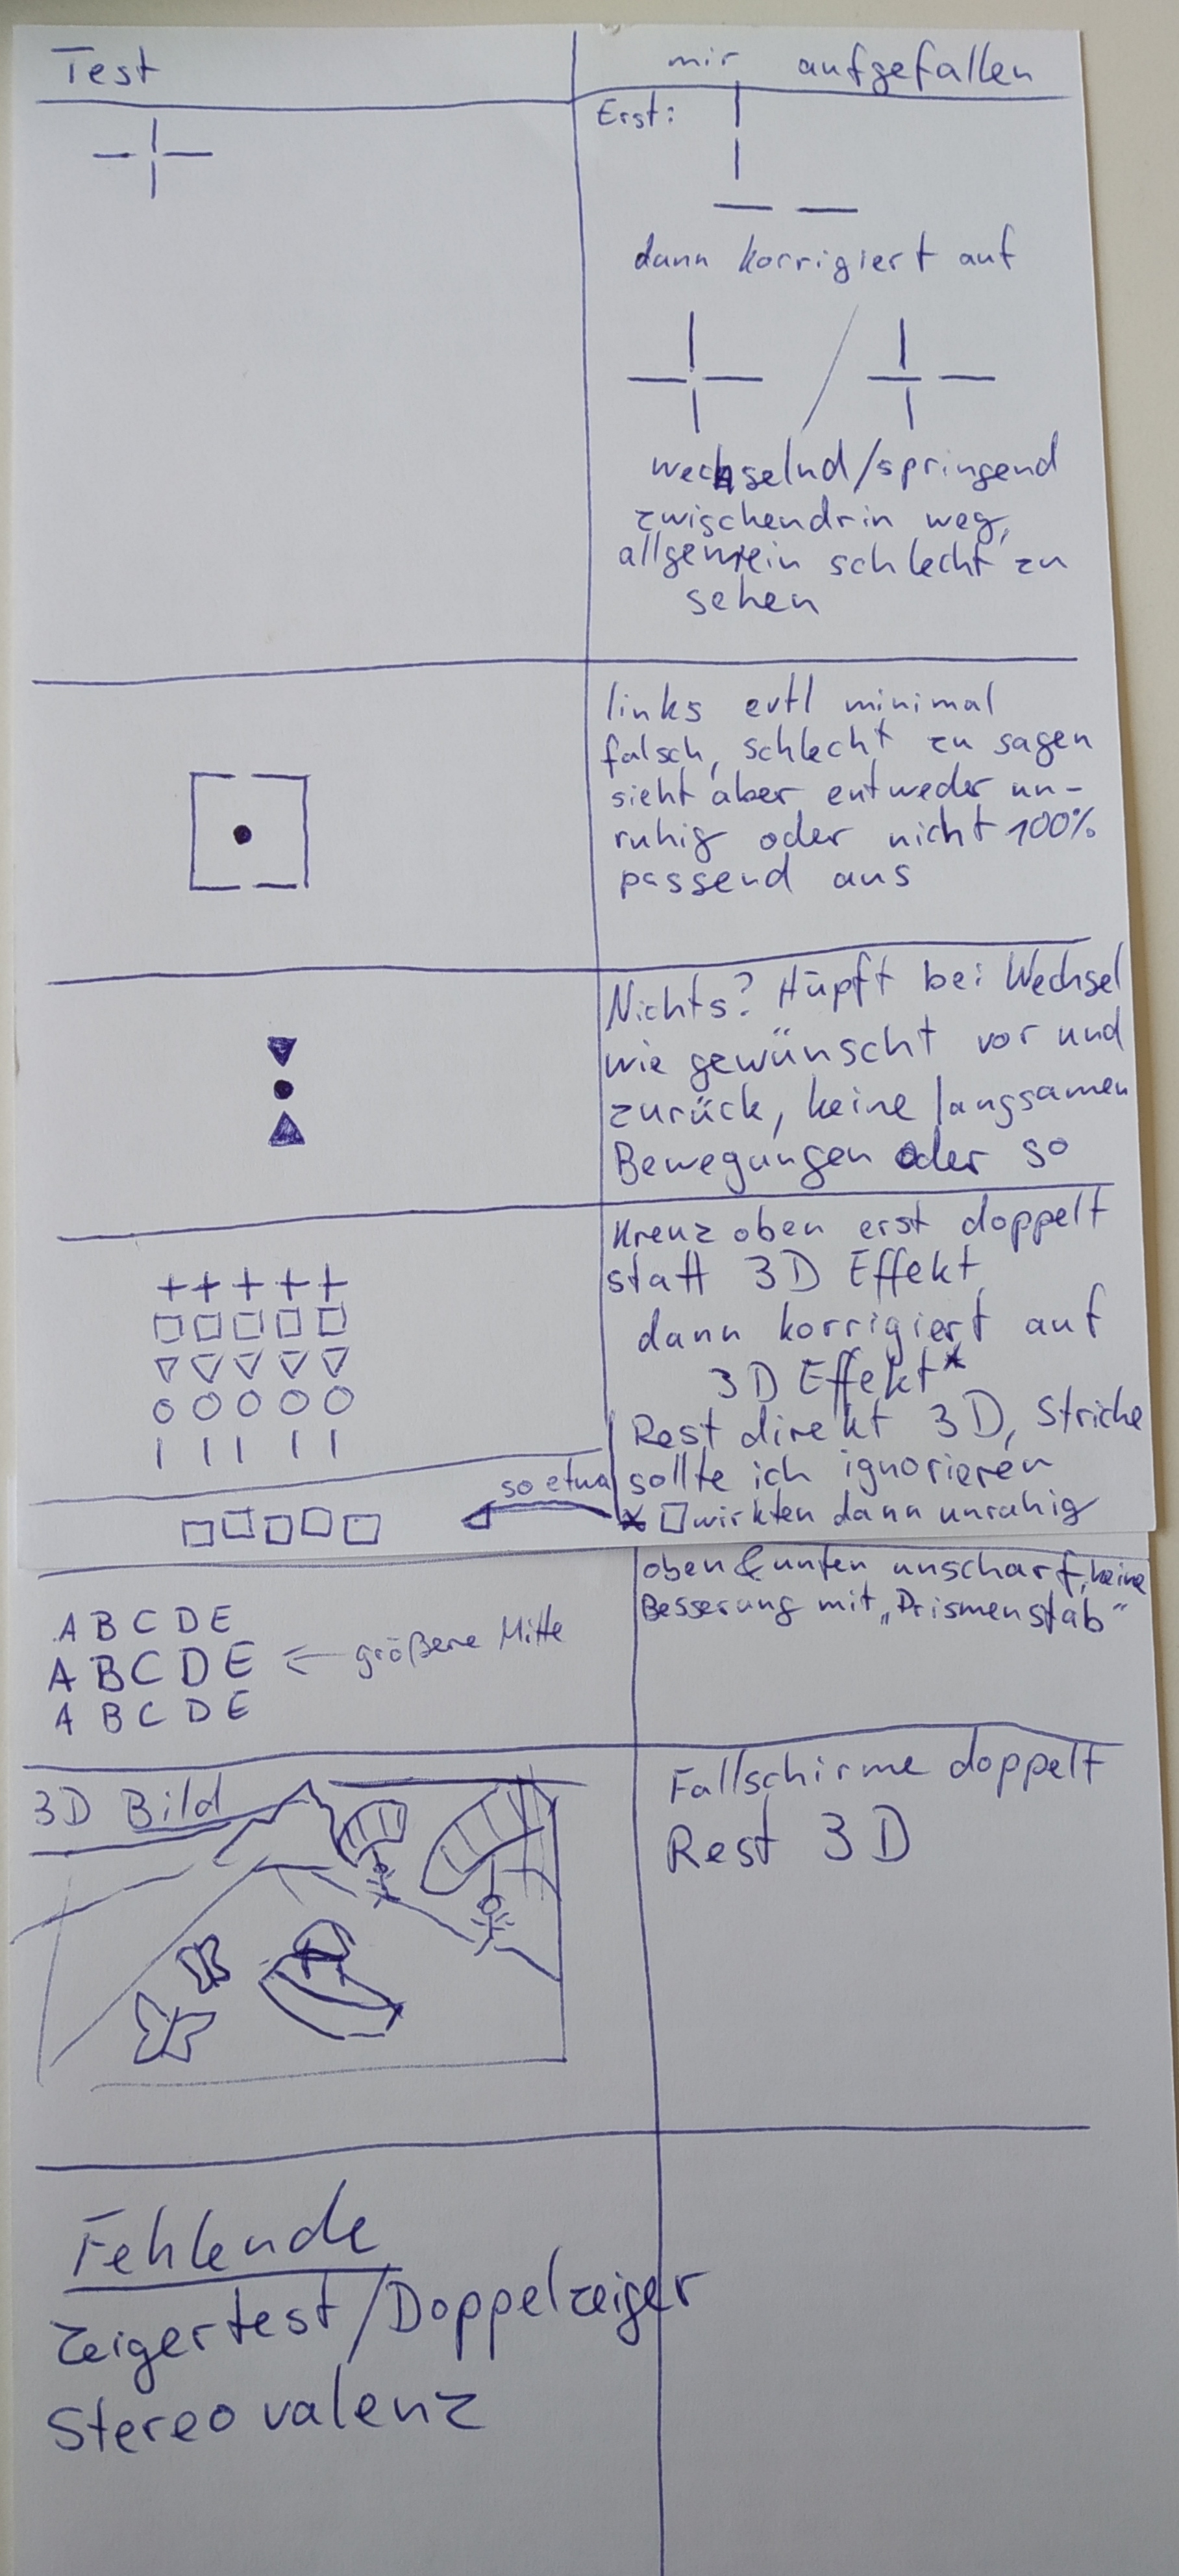 Test
mir aufgefallen
Erst:
dann korrigiert auf
wechselnd/springend
zwischendrin weg,
allgemein schlecht zu
sehen
links evtl minimal
falsch, schlecht zu sagen
sieht aber entweder un-
ruhig oder nicht 100%
passend aus
Nichts? Hüpft bei Wechsel
wie gewünscht vor und
zurück, keine langsamen
Bewegungen oder so
Kreuz oben erst doppelt
statt 3D Effekt
dann korrigiert auf
3D Effekt*
Rest direkt 3D, Striche
sollte ich ignorieren
so etwa
* □ wirkten dann unruhig
A B C D E
A B C D E ← größere Mitte
A B C D E
oben & unten unscharf, keine
Besserung mit „Prismenstab“
3D Bild
Fallschirme doppelt
Rest 3D
Fehlende
Zeigertest/Doppelzeiger
Stereovalenz